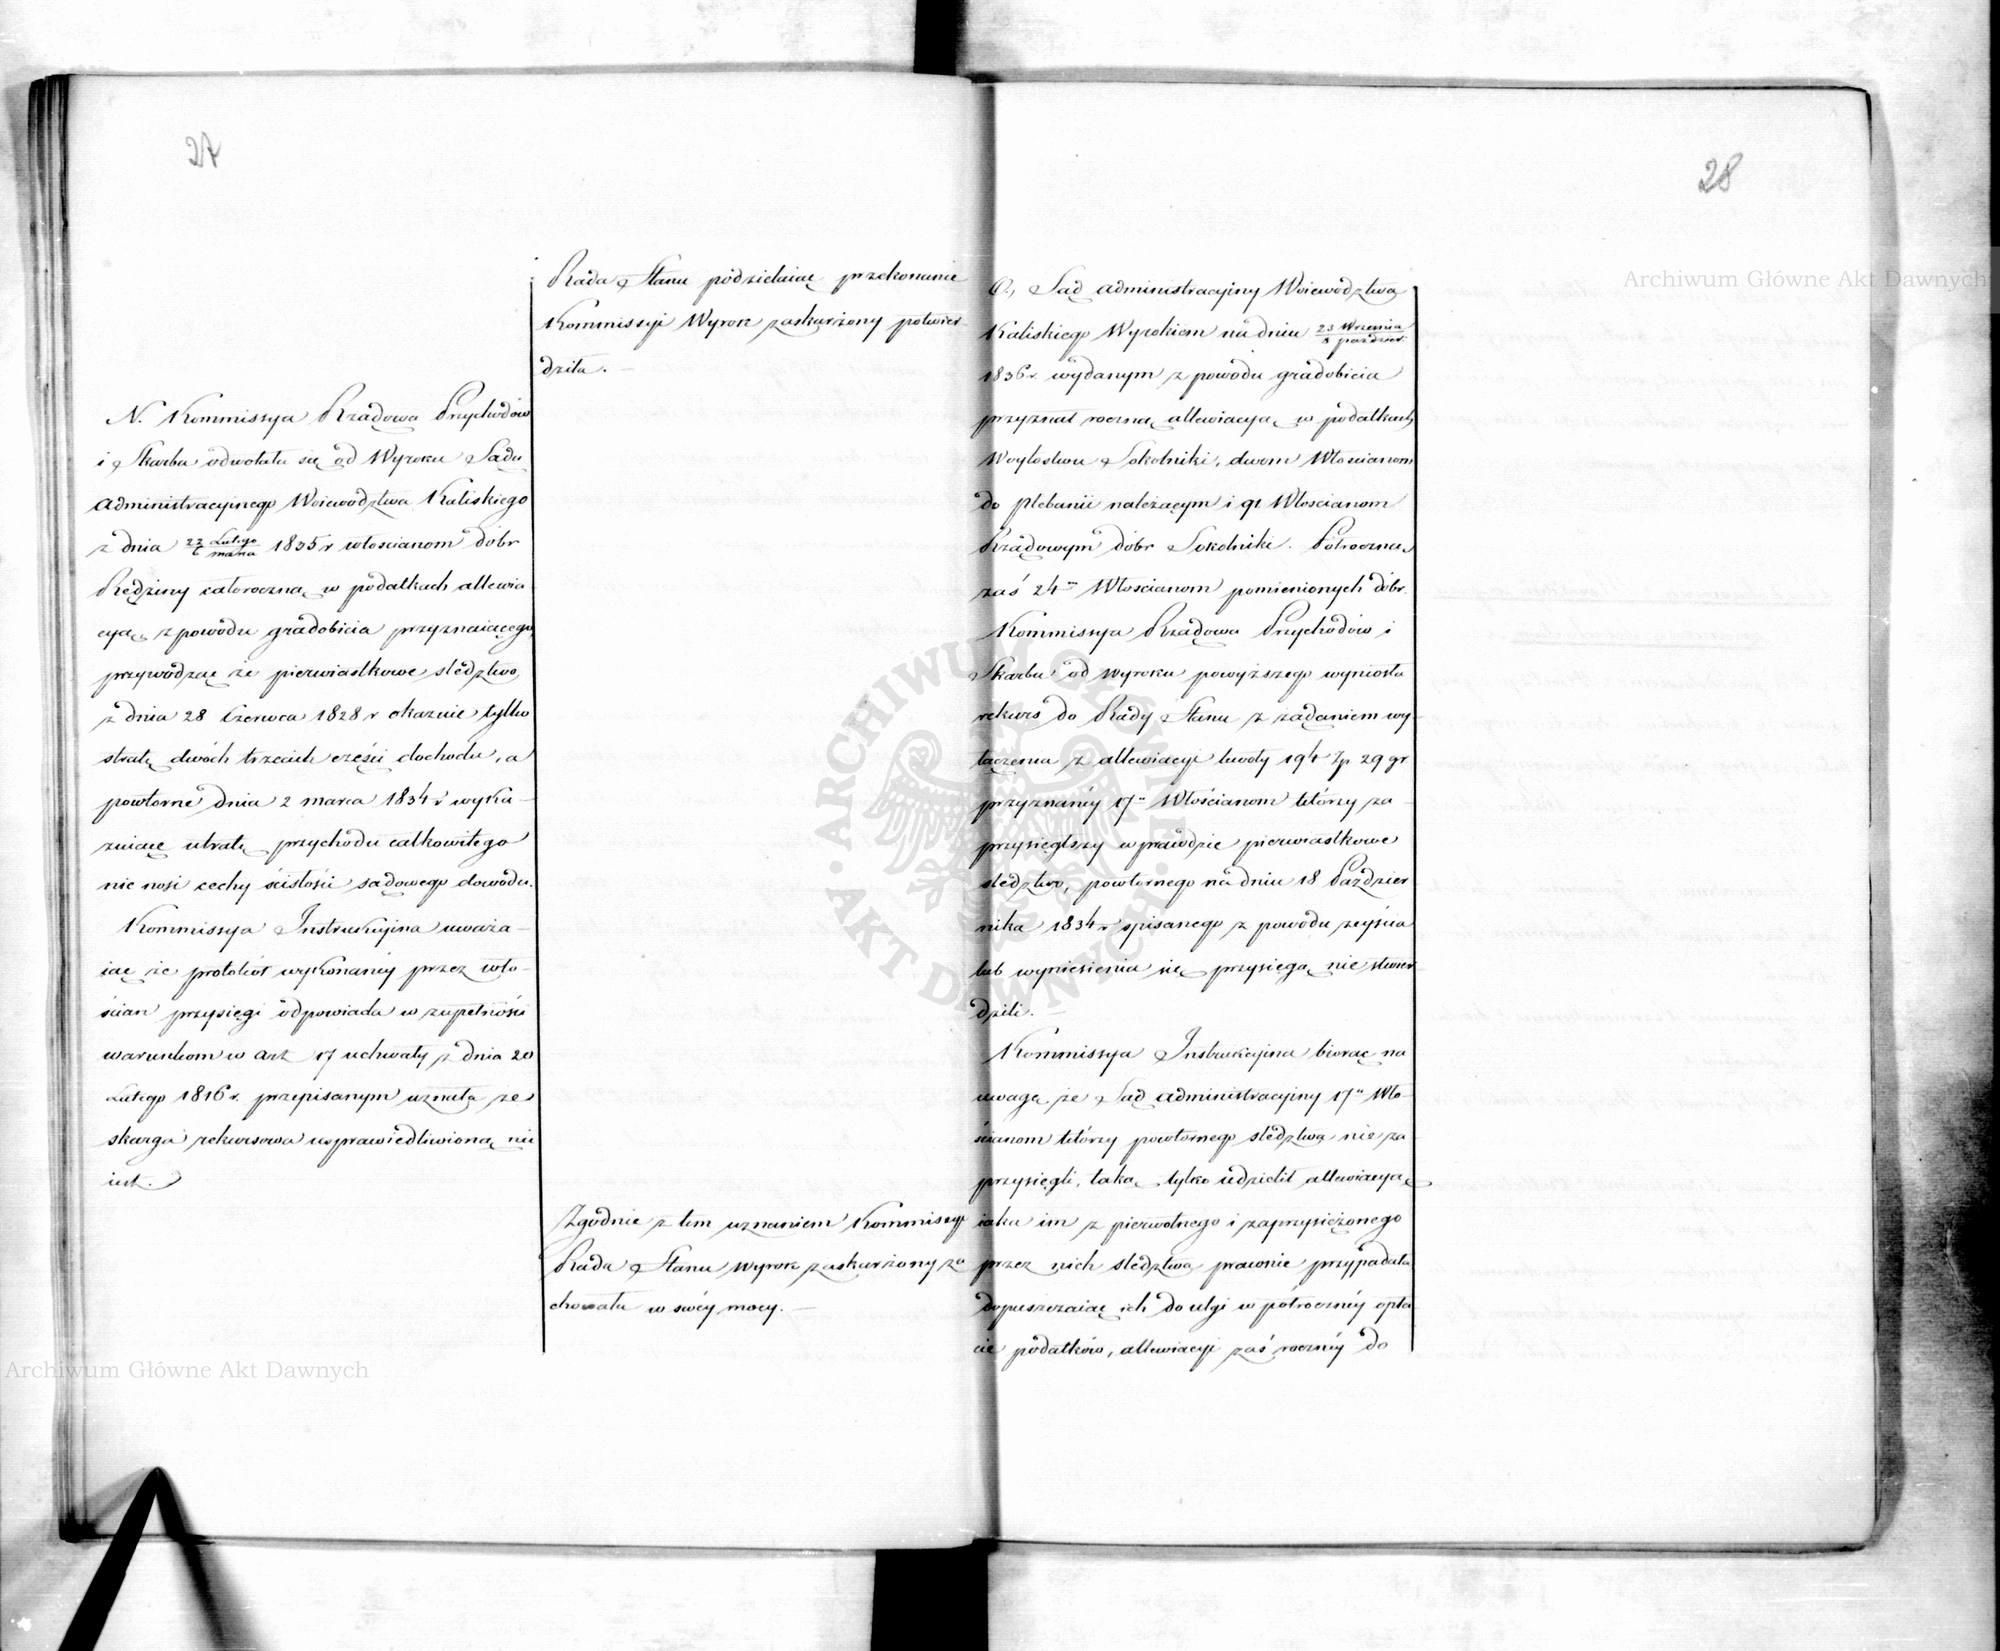 27
Rada Stanu podzielaiąc przekonanie
Kommissyi Wyrok zaskarżony potwier
dziła. —
N. Kommissya Rządowa Przychodów
i Skarbu odwołała się od Wyroku Sądu
Administracyinego Woiewództwa Kaliskiego
z dnia 22 Lutego / 6 marca 1835 r włościanom dóbr
Rędziny całoroczną w podatkach allewia
cyą z powodu gradobicia przyznaiącego
przywodząc że pierwiastkowe śledztwo
z dnia 28 Czerwca 1828 r okazuie tylko
stratę dwóch trzecich części dochodu, a
powtorne dnia 2 marca 1834 r wyka-
zuiące utratę przychodu całkowitego
nie nosi cechy ścisłości sądowego dowodu.
Kommissya Instrukcyina uważa-
iąc że protokół wykonanéy przez wło-
ścian przysięgi odpowiada w zupełności
warunkom w art 17 uchwały z dnia 20
Lutego 1816 r. przepisanym uznała że
skarga rekursowa usprawiedliwioną nie
iest.
Zgodnie z tem uznaniem Kommissyi
Rada Stanu Wyrok zaskarżony za
chowała w swéy mocy. —
28
O., Sąd Administracyiny Woiewództwa
Kaliskiego Wyrokiem na dniu 23 Września / 5 paździer:
1836 r. wydanym z powodu gradobicia
przyznał roczną allewiacyą w podatkach
Woytostwu Sokolniki, dwom Włościanom
do plebanii należącym i 91 Włościanom
Rządowym dóbr Sokolniki. Półroczną
zaś 24 Włościanom pomienionych dóbr.
Kommissya Rządowa Przychodów i
Skarbu od Wyroku powyższego wyniosła
rekurs do Rady Stanu z żądaniem wy
łączenia z allewiacyi kwoty 194 Zp 29 gr
przyznanéy 17 Włościanom którzy za-
przysięgłszy wprawdzie pierwiastkowe
śledztwo, powtornego na dniu 18 Paździer
nika 1834 r spisanego z powodu zeyścia
lub wyniesienia się przysięgą nie stwier
dzili. —
Kommissya Instrukcyina biorąc na
uwagę że Sąd Administracyiny 17 Wło-
ścianom którzy powtornego śledztwa nie za
przysięgli, taką tylko udzielił allewiacyą
iaka im z pierwotnego i zaprzysiężonego
przez nich śledztwa prawnie przypadała
dopuszczaiąc ich do ulgi w półrocznéy opła
cie podatków, allewiacyi zaś rocznéy do
Archiwum Główne Akt Dawnych
Archiwum Główne Akt Dawnych
ARCHIWUM GŁÓWNE · AKT DAWNYCH ·